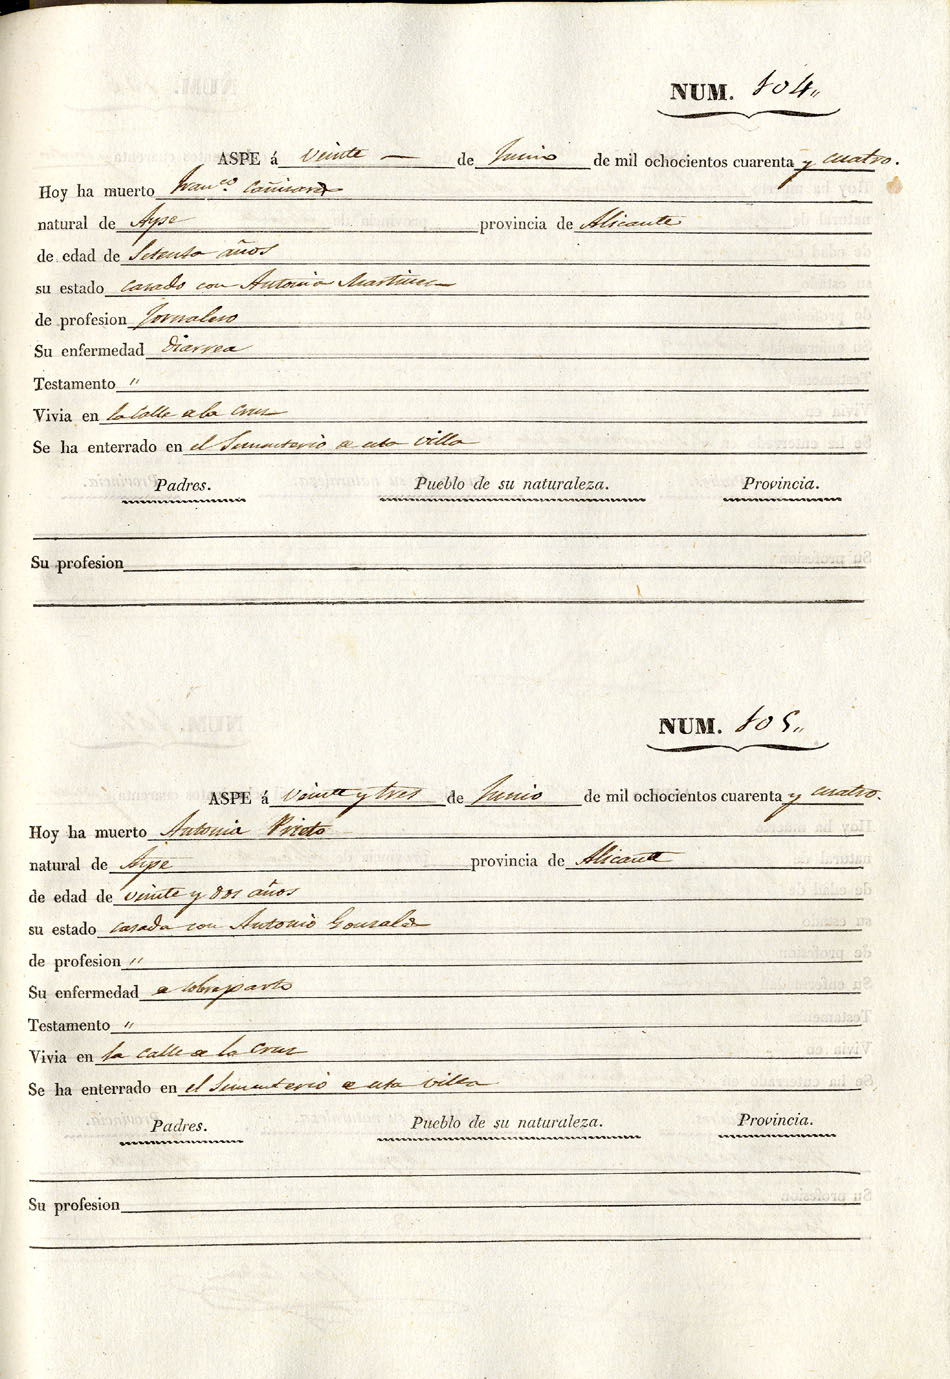 NUM. 104,,
ASPE á Veinte — de Junio de mil ochocientos cuarenta y cuatro.
Hoy ha muerto Franco. Cañizares
natural de Aspe provincia de Alicante
de edad de Setenta años
su estado casado con Antonia Martinez
de profesion Jornalero
Su enfermedad diarrea
Testamento "
Vivia en la Calle de la Cruz
Se ha enterrado en el Sementerio de esta villa
Padres. Pueblo de su naturaleza. Provincia.
Su profesion
NUM. 105,,
ASPE á veinte y tres de Junio de mil ochocientos cuarenta y cuatro.
Hoy ha muerto Antonia Prieto
natural de Aspe provincia de Alicante
de edad de veinte y dos años
su estado casada con Antonio Gonzalez
de profesion "
Su enfermedad de sobreparto
Testamento "
Vivia en la calle de la Cruz
Se ha enterrado en el Sementerio de esta villa
Padres. Pueblo de su naturaleza. Provincia.
Su profesion